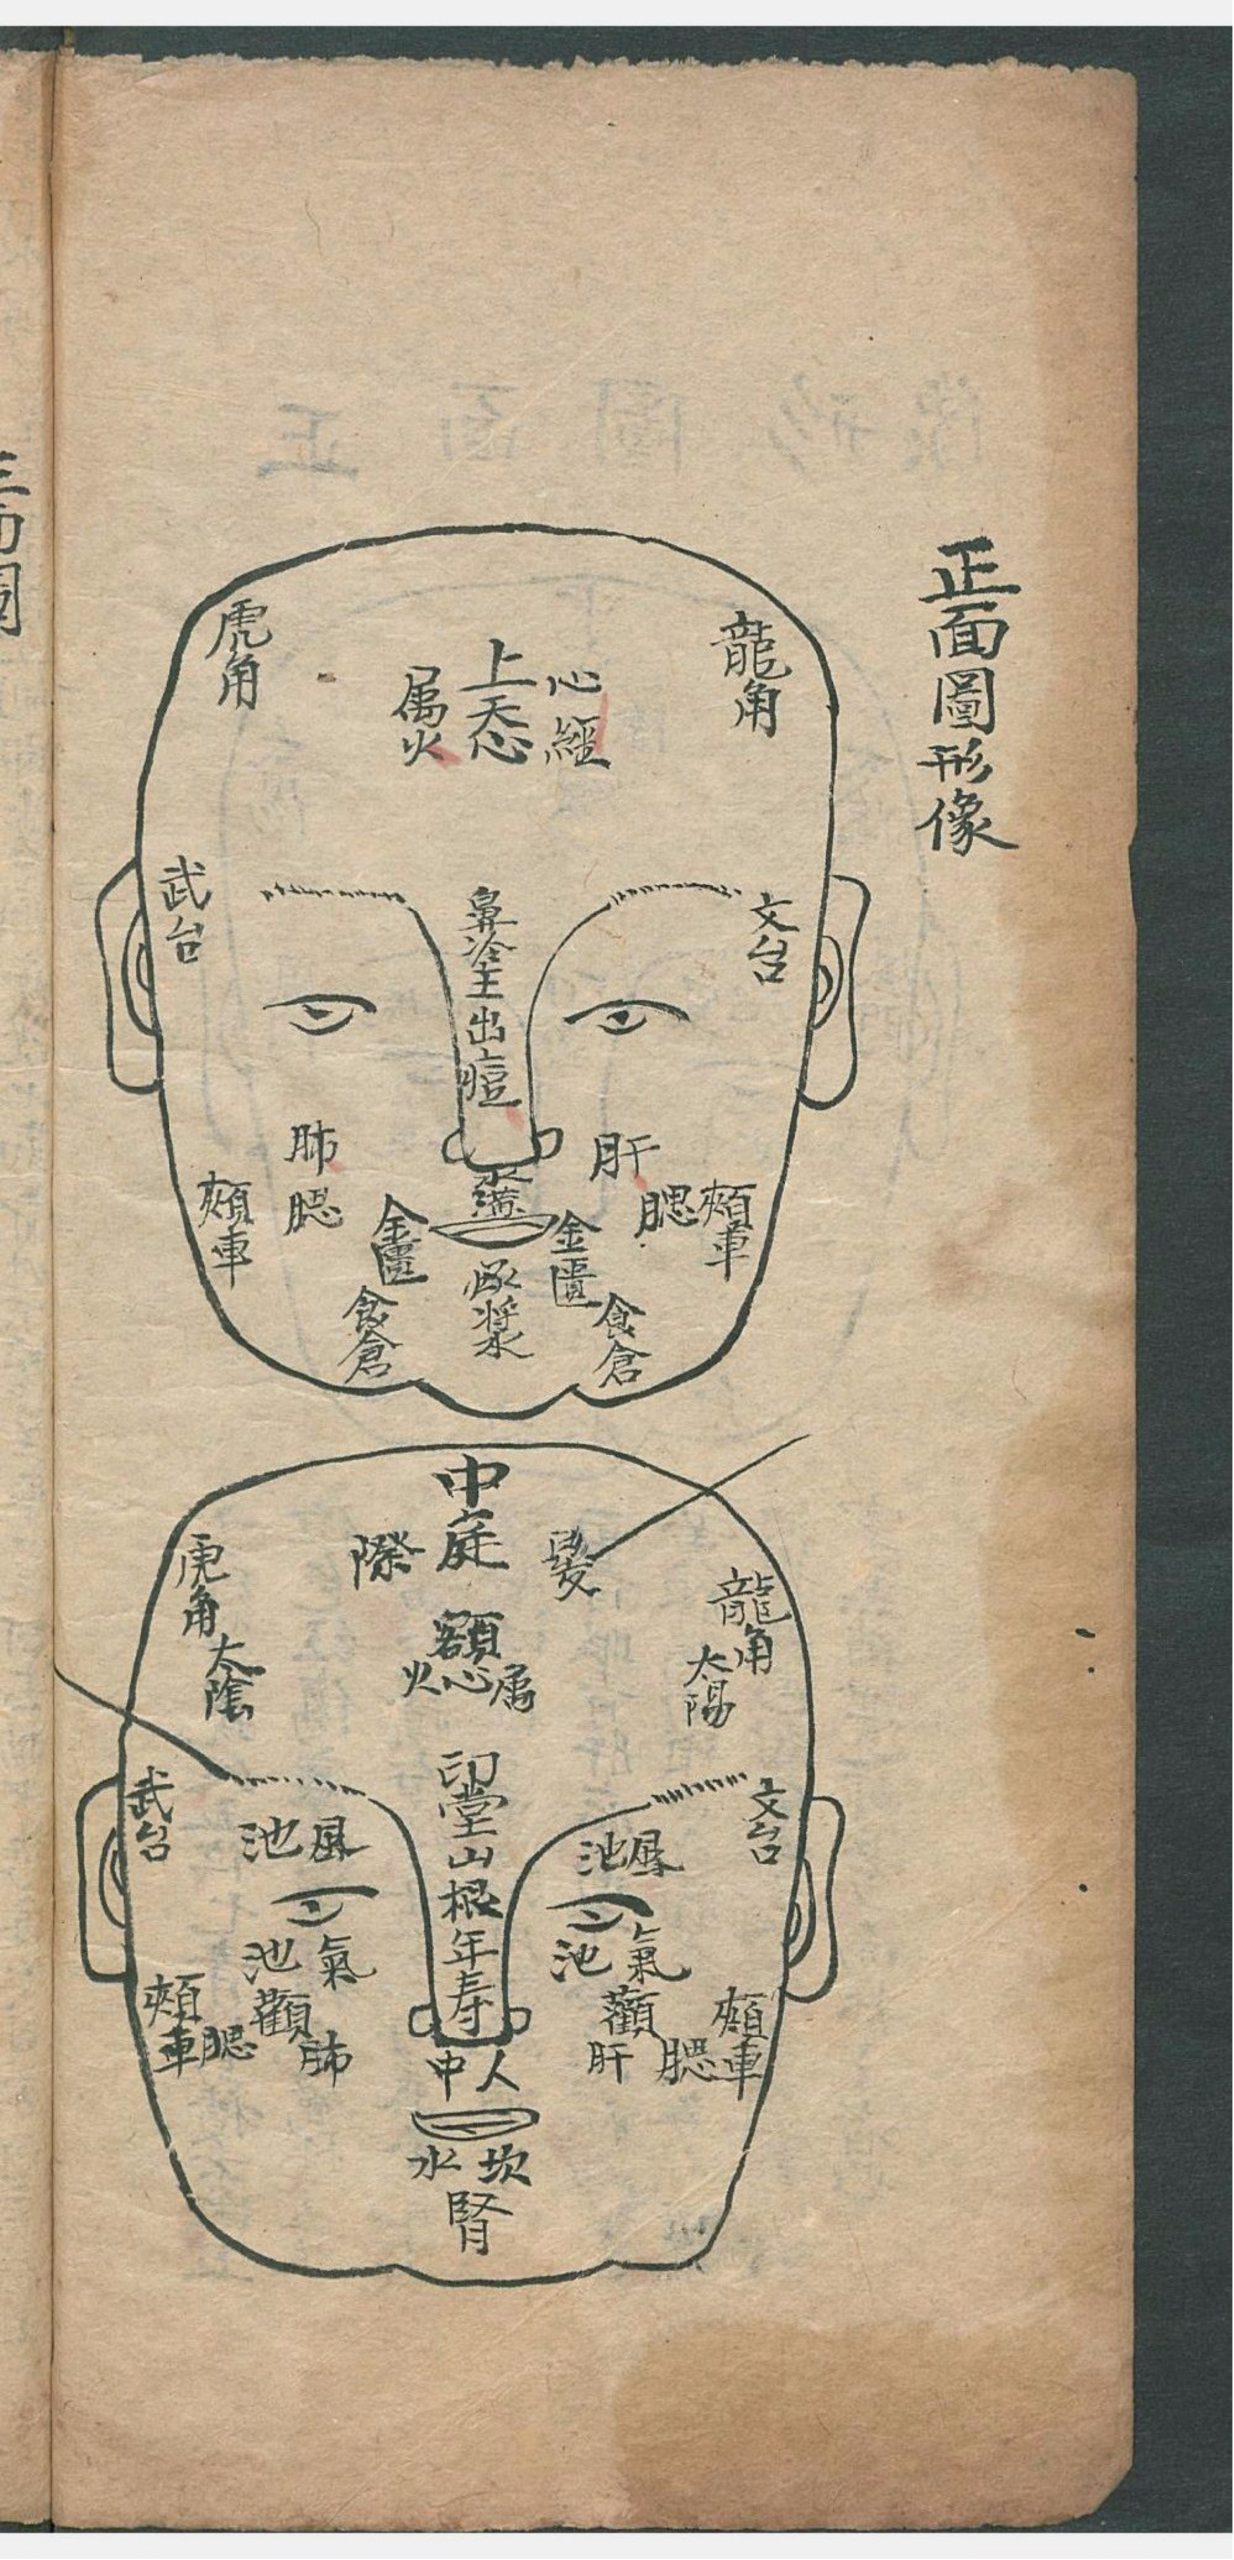 正面圖形像
龍角
心經
上天心
属火
虎角
文台
武台
鼻塗主出痘
肝
腮
頰車
肺
腮
頰車
金匱
食倉
金匱
食倉
承漿
中庭
髮
際
龍角
太陽
虎角
太陰
額心
属
火
印堂山根年寿
文台
武台
風池
風池
氣池
氣池
顴
肝
腮
頰車
顴
肺
腮
頰車
人中
坎水
腎